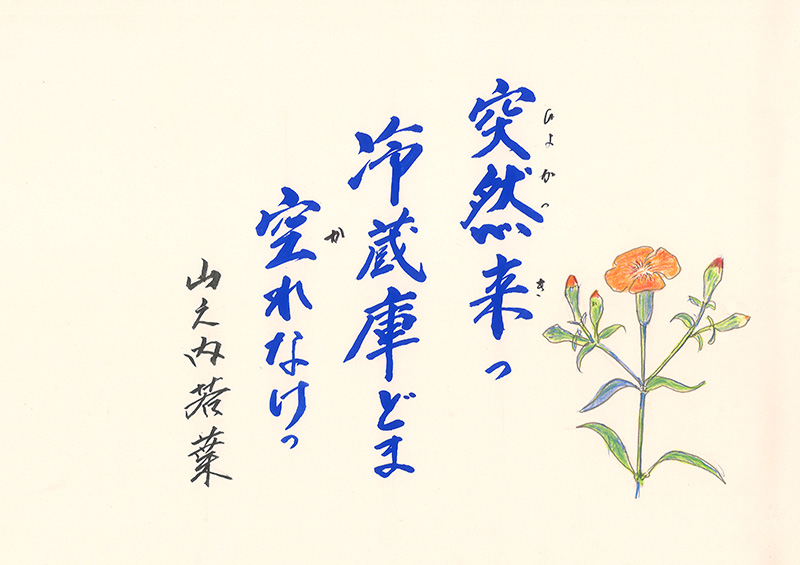 突然来っ
ひょかっ
き
冷蔵庫どま
空れなけっ
か
山之内若葉